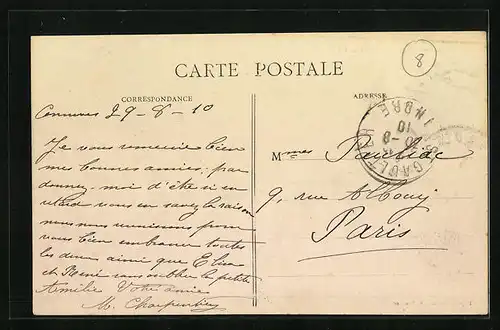 8
CARTE POSTALE
CORRESPONDANCE
ADRESSE
29-8-10
Je vous remercie bien
mes bonnes amies; par
donnez-moi d'être si en
retard vous en savez la raison
nous nous réunissons pour
vous bien embrasser toutes
les deux ainsi que Elisa
et René sans oublier la petite
Amélie Votre amie
M. Charpentier
Mmes
9, rue Albouy
Paris
INDRE
10